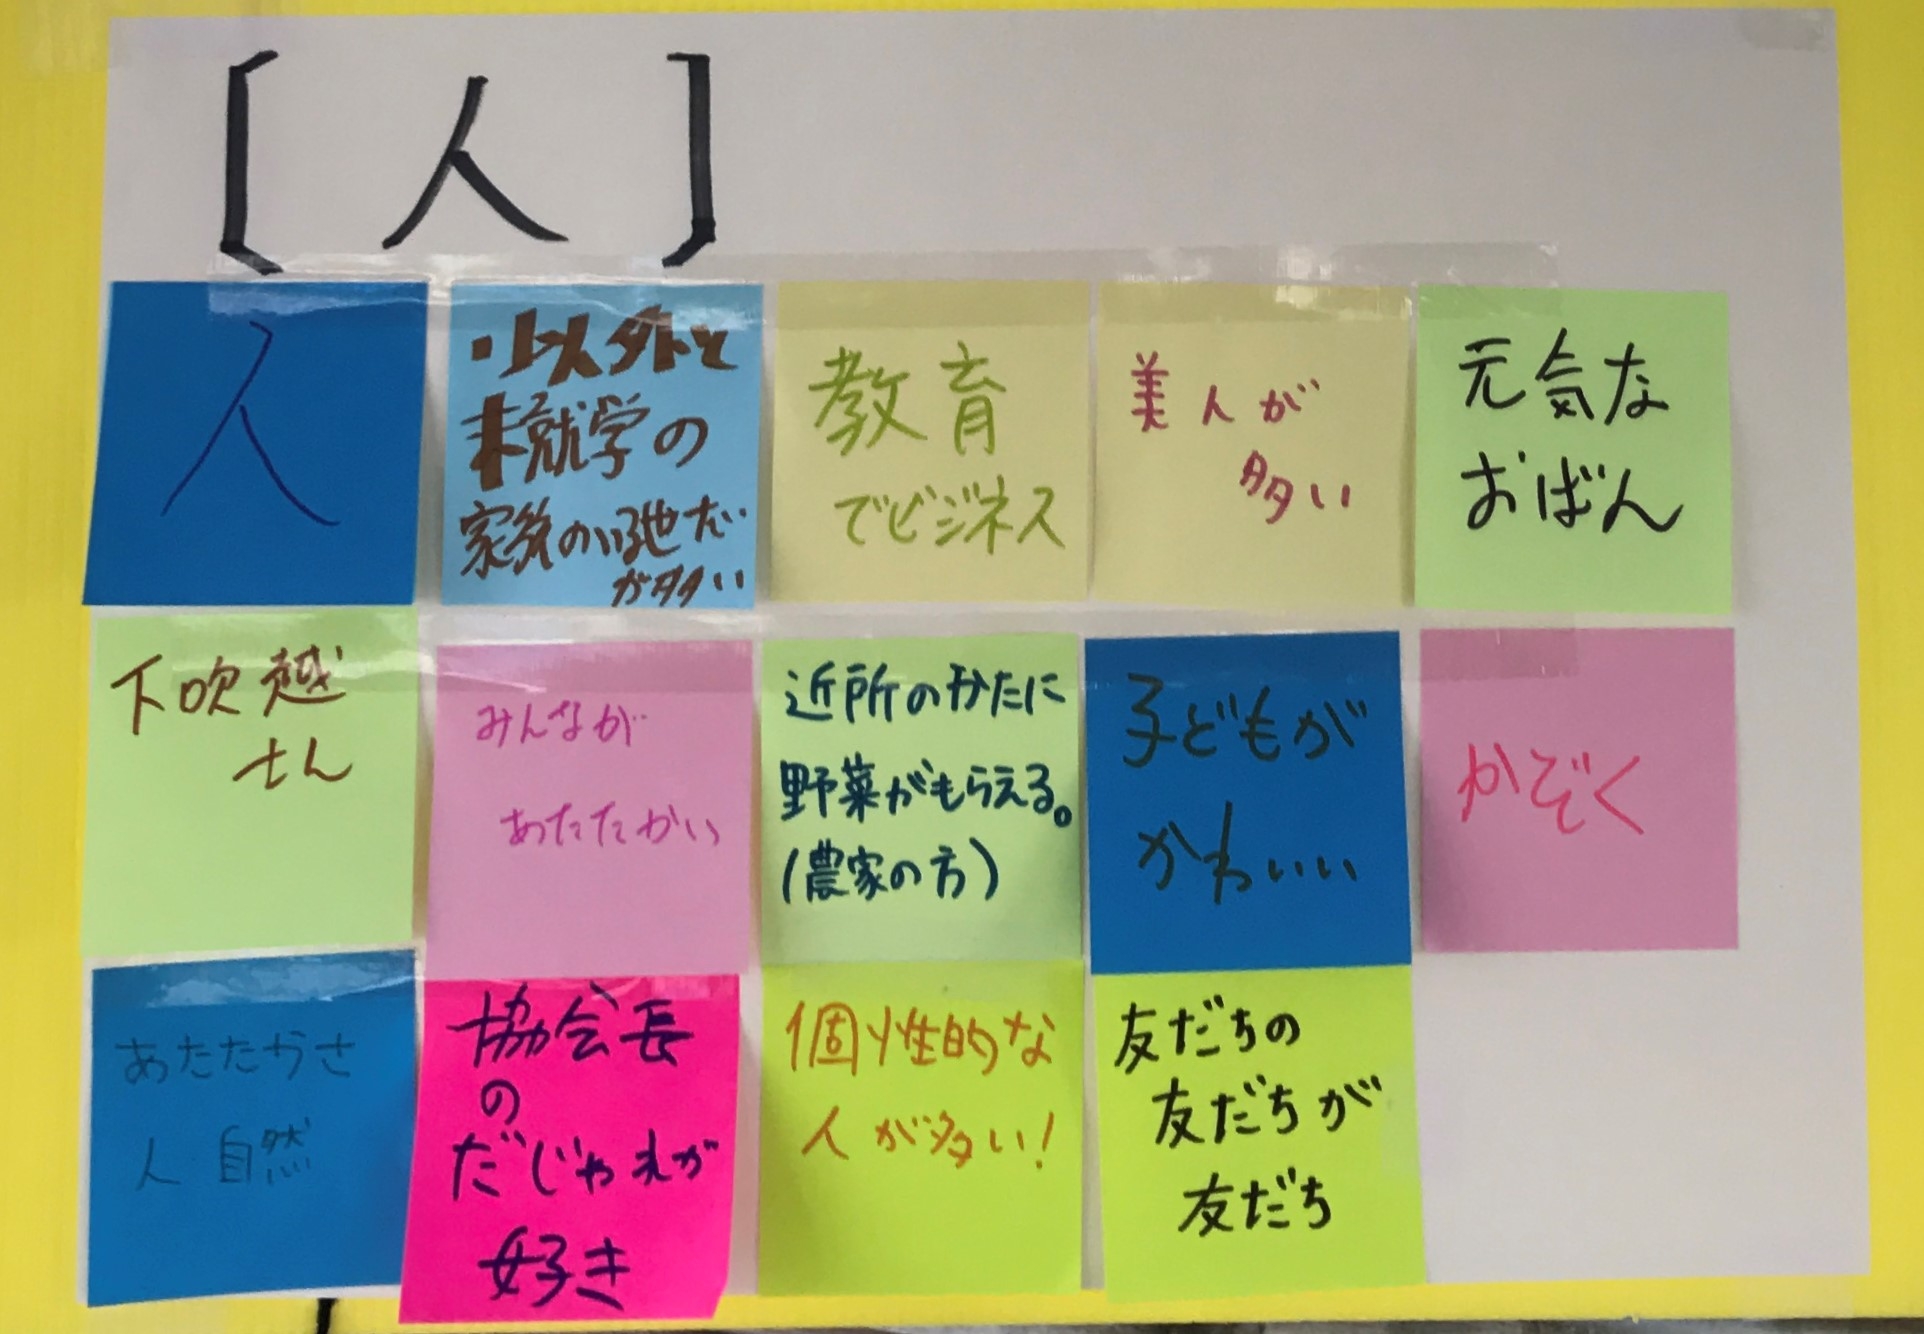 [人]
人
未就学の
が多い
教育
でビジネス
美人が
多い
元気な
おばん
下吹越
さん
みんなが
あたたかい
近所のかたに
野菜がもらえる。
(農家の方)
子どもが
かわいい
かぞく
あたたかさ
人 自然
協会長
の
だじゃれが
好き
個性的な
人が多い!
友だちの
友だちが
友だち